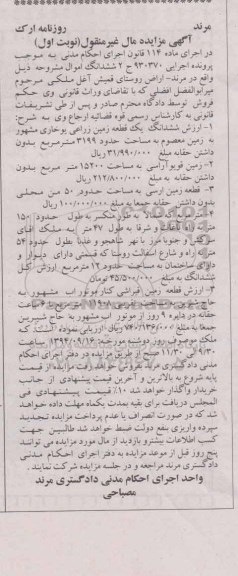 مرند روزنامه ارک
آگهی مزایده مال غیرمنقول(نوبت اول)
در اجرای ماده ۱۱۴ قانون اجرای احکام مدنی به موجب
پرونده اجرایی ۹۳۰۳۷۰ ج ۲ ششدانگ اموال مشروحه ذیل
واقع در مرند- اراضی روستای قمیش آغل ملکی مرحوم
میرابوالفضل افضلی که با تقاضای وراث قانونی وی حکم
فروش توسط دادگاه محترم صادر و پس از طی تشریفات
قانونی به کارشناس رسمی قوه قضائیه ارجاع وی به شرح:
۱- ارزش ششدانگ یک قطعه زمین زراعی یوخاری مشهور
به زمین معصوم به مساحت حدود ۳۱۹۹ مترمربع بدون
داشتن حقابه مبلغ ۳۱/۹۹۰/۰۰۰ ریال
۲- زمین قویو آراسی به مساحت ۱۵۲۰۰ متر مربع بدون
داشتن حقابه به مبلغ ۲۱۲/۸۰۰/۰۰۰ ریال
۳- قطعه زمین ارسی به مساحت حدود ۵۰ من محلی
بدون داشتن حقابه جمعا به مبلغ ۱۰۰/۰۰۰/۰۰۰ ریال
به طور منکسر به طول حدود ۱۵۰
متر به راه باغات و شرقا به طول ۴۷ متر به ملک آقای
و جنوبا مرز با نهر شاهجو و غدبا بطول حدود ۵۴
متر به راه و شارع آسفالت روستا که قسمتی دارای دیوار و
دارای ساختمان به مساحت حدود ۱۲ مترمربع ارزش کل
ششدانگ به مبلغ ۴۵/۵۰۰/۰۰۰ تومان
۴- ارزش قطعه زمین کنار موتور آب مشهور به
حاج
حقابه در دایره ۹ روز از موتور آب مشهور به حاج شیرین
جمعا به مبلغ ۷۴۰/۱۳۶/۰۰۰ ریال ارزیابی نموده است که
ملک موصوف روز دوشنبه مورخه ۱۳۹۴/۰۹/۱۶ ساعت
۹/۳۰ الی ۱۱/۳۰ صبح از طریق مزایده در دفتر اجرای احکام
مدنی دادگستری مرند بفروش خواهد رفت مزایده از قیمت
پایه شروع به بالاترین و آخرین قیمت پیشنهادی از جانب
خریدار واگذار خواهد شد ۱۰٪ قیمت پیشنهادی فی
المجلس دریافت برای بقیه بمدت یکماه مهلت داده خواهد
شد که در صورت انصراف یا عدم پرداخت مزایده تجدید
سپرده واریزی بنفع دولت ضبط خواهد شد طالبین جهت
کسب اطلاعات بیشتر و بازدید از مال مورد مزایده می توانند
پنج روز قبل از موعد مزایده به دفتر اجرای احکام مدنی
دادگستری مرند مراجعه و در جلسه مزایده شرکت نمایند.
واحد اجرای احکام مدنی دادگستری مرند
مصباحی